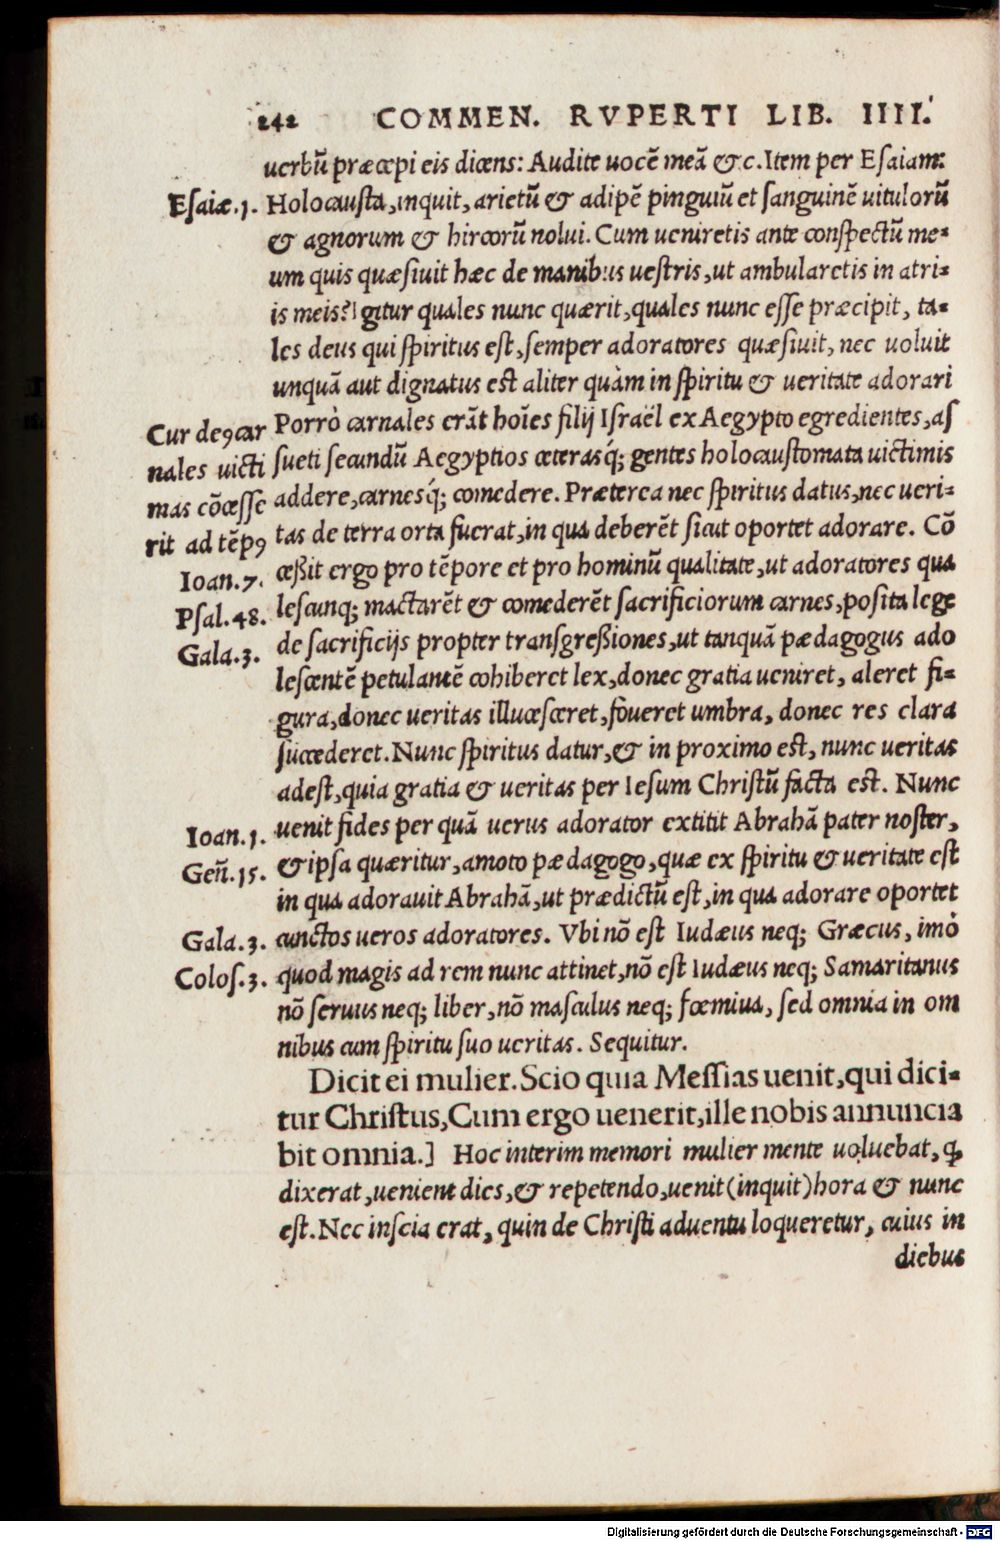 242 COMMEN. RVPERTI LIB. IIII.
uerbũ præcepi eis dicens: Audite uocẽ meã &c. Item per Esaiam:
Esaiæ.1. Holocausta, inquit, arietũ & adipẽ pinguiũ et sanguinẽ uitulorũ
& agnorum & hircorũ nolui. Cum ueniretis ante conspectũ me-
um quis quæsiuit hæc de manibus uestris, ut ambularetis in atri-
is meis? Igitur quales nunc quærit, quales nunc esse præcipit, ta-
les deus qui spiritus est, semper adoratores quæsiuit, nec uoluit
unquã aut dignatus est aliter quàm in spiritu & ueritate adorari
Cur deꝯ car Porrò carnales erãt hoĩes filij Israël ex Aegypto egredientes, as
nales uicti sueti secundũ Aegyptios cæterasq́; gentes holocaustomata uictimis
mas cõcesse addere, carnesq́; comedere. Præterea nec spiritus datus, nec ueri-
rit ad tẽpꝯ tas de terra orta fuerat, in qua deberẽt sicut oportet adorare. Cõ
Ioan.7. cessit ergo pro tẽpore et pro hominũ qualitate, ut adoratores qua
Psal.48. lescunq; mactarẽt & comederẽt sacrificiorum carnes, posita lege
Gala.3. de sacrificijs propter transgressiones, ut tanquã pædagogus ado
lescentẽ petulantẽ cohiberet lex, donec gratia ueniret, aleret fi-
gura, donec ueritas illucesceret, foueret umbra, donec res clara
succederet. Nunc spiritus datur, & in proximo est, nunc ueritas
adest, quia gratia & ueritas per Iesum Christũ facta est. Nunc
Ioan.1. uenit fides per quã uerus adorator extitit Abrahã pater noster,
Geñ.15. & ipsa quæritur, amoto pædagogo, quæ ex spiritu & ueritate est
in qua adorauit Abrahã, ut prædictũ est, in qua adorare oportet
Gala.3. cunctos ueros adoratores. Vbi nõ est Iudæus neq; Græcus, imò
Colos.3. quod magis ad rem nunc attinet, nõ est Iudæus neq; Samaritanus
nõ seruus neq; liber, nõ masculus neq; fœmina, sed omnia in om
nibus cum spiritu suo ueritas. Sequitur.
Dicit ei mulier. Scio quia Messias uenit, qui dici-
tur Christus, Cum ergo uenerit, ille nobis annuncia
bit omnia.] Hoc interim memori mulier mente uoluebat, ꝙ
dixerat, uenient dies, & repetendo, uenit (inquit) hora & nunc
est. Nec inscia erat, quin de Christi aduentu loqueretur, cuius in
diebus
Digitalisierung gefördert durch die Deutsche Forschungsgemeinschaft - DFG